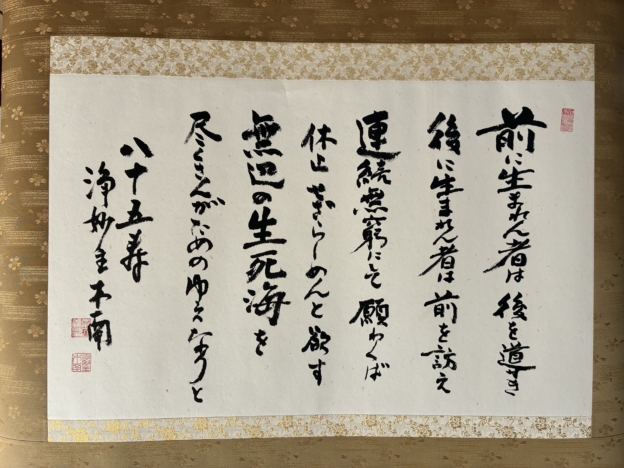 前に生まれん者は後を導き
後に生まれん者は前を訪え
連続無窮にして願わくば
休止せざらしめんと欲す
無辺の生死海を
尽くさんがためのゆえなりと
八十五寿
浄妙主木南